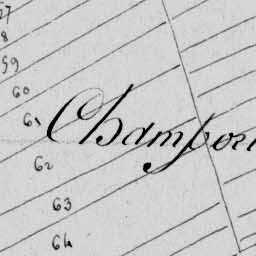 59
60
61
Champon
62
63
64